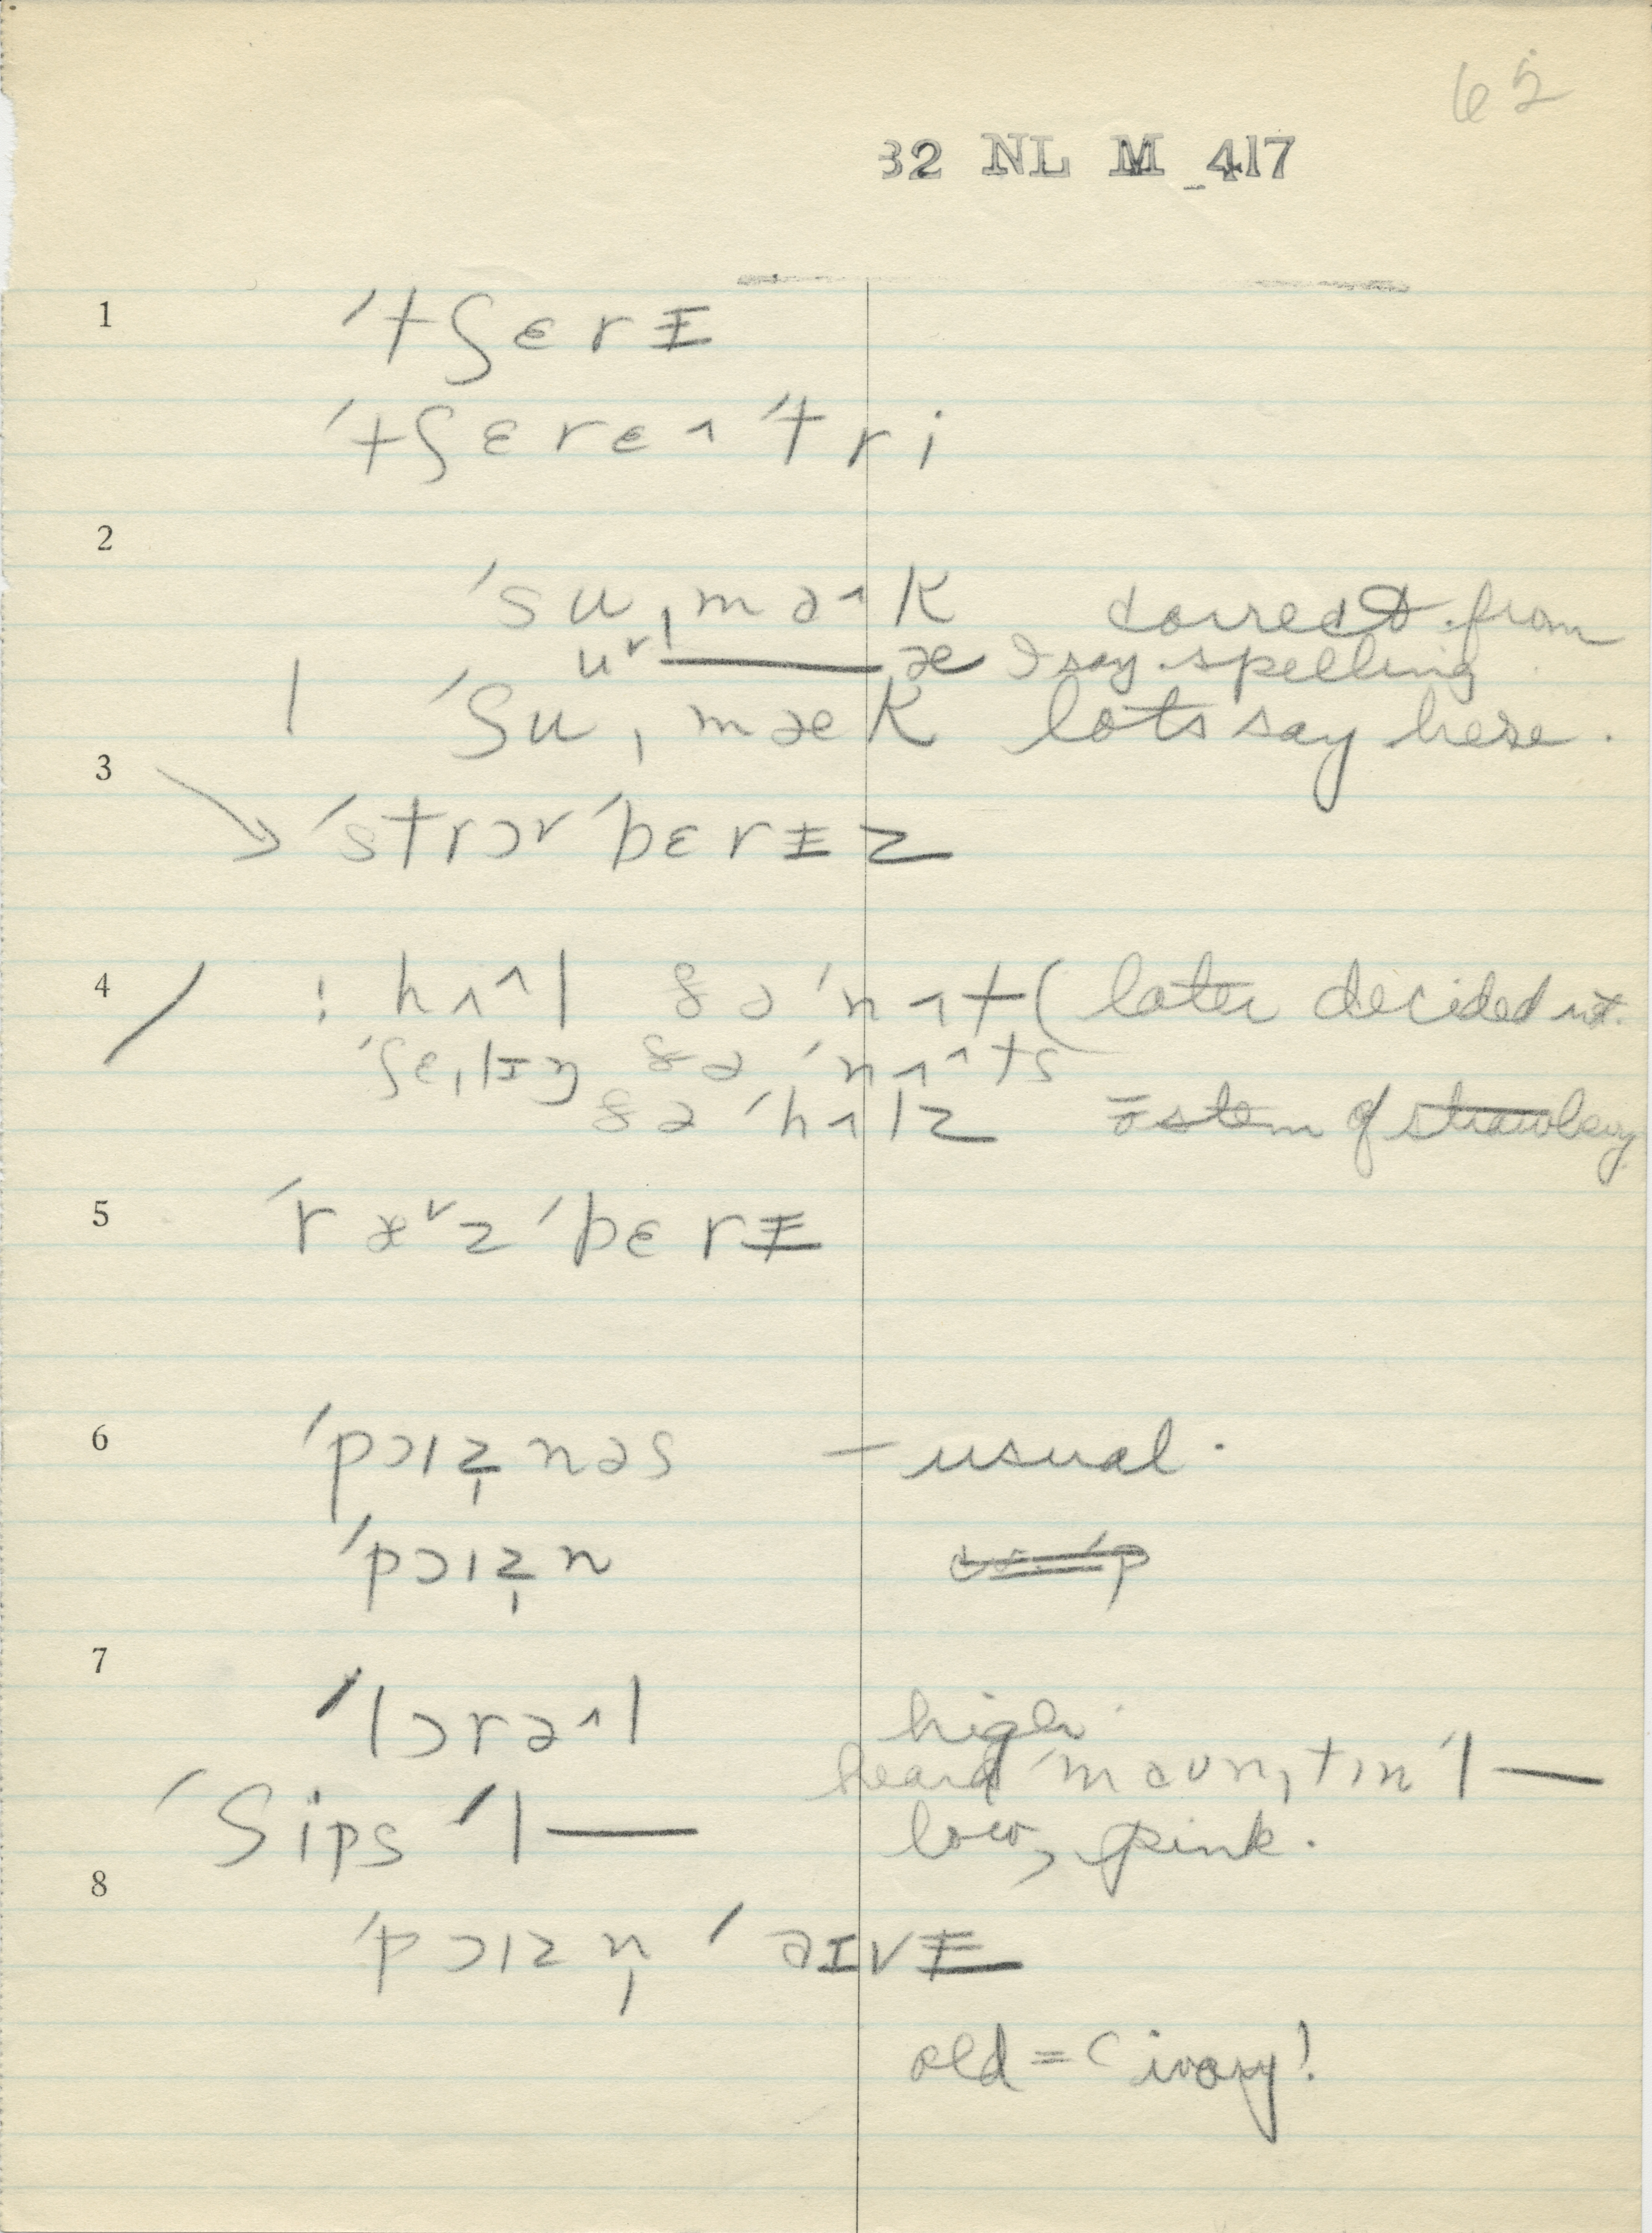 62
32 NL M 417
1 ˈtʃɛrɨ
ˈtʃɛrɛ^ ˈtri
2
ˈsuˌmə^k correct from
u˅ˌ—æ I say spelling
| ˈʃuˌmæk lots say here.
3
→ ˈstrɔ˅ˈbɛrɨz
4 / ! hʌ^l ðə ˈnʌt (later decided not.
ˈʃɛˌlɪŋ ðə ˈnʌ^ts
ðə ˈhʌlz = stem of strawberry
5 ˈræ˅zˈbɛrɨ
6 ˈpɔɪz̩nəs – usual.
ˈpɔɪz̩n
7
ˈlɔrə^l high
heard ˈmaʊnˌtɪn ˈl—
ˈʃips ˈl— low, pink.
8
ˈpɔɪzn̩ ˈaɪvɨ
old = (ivory!